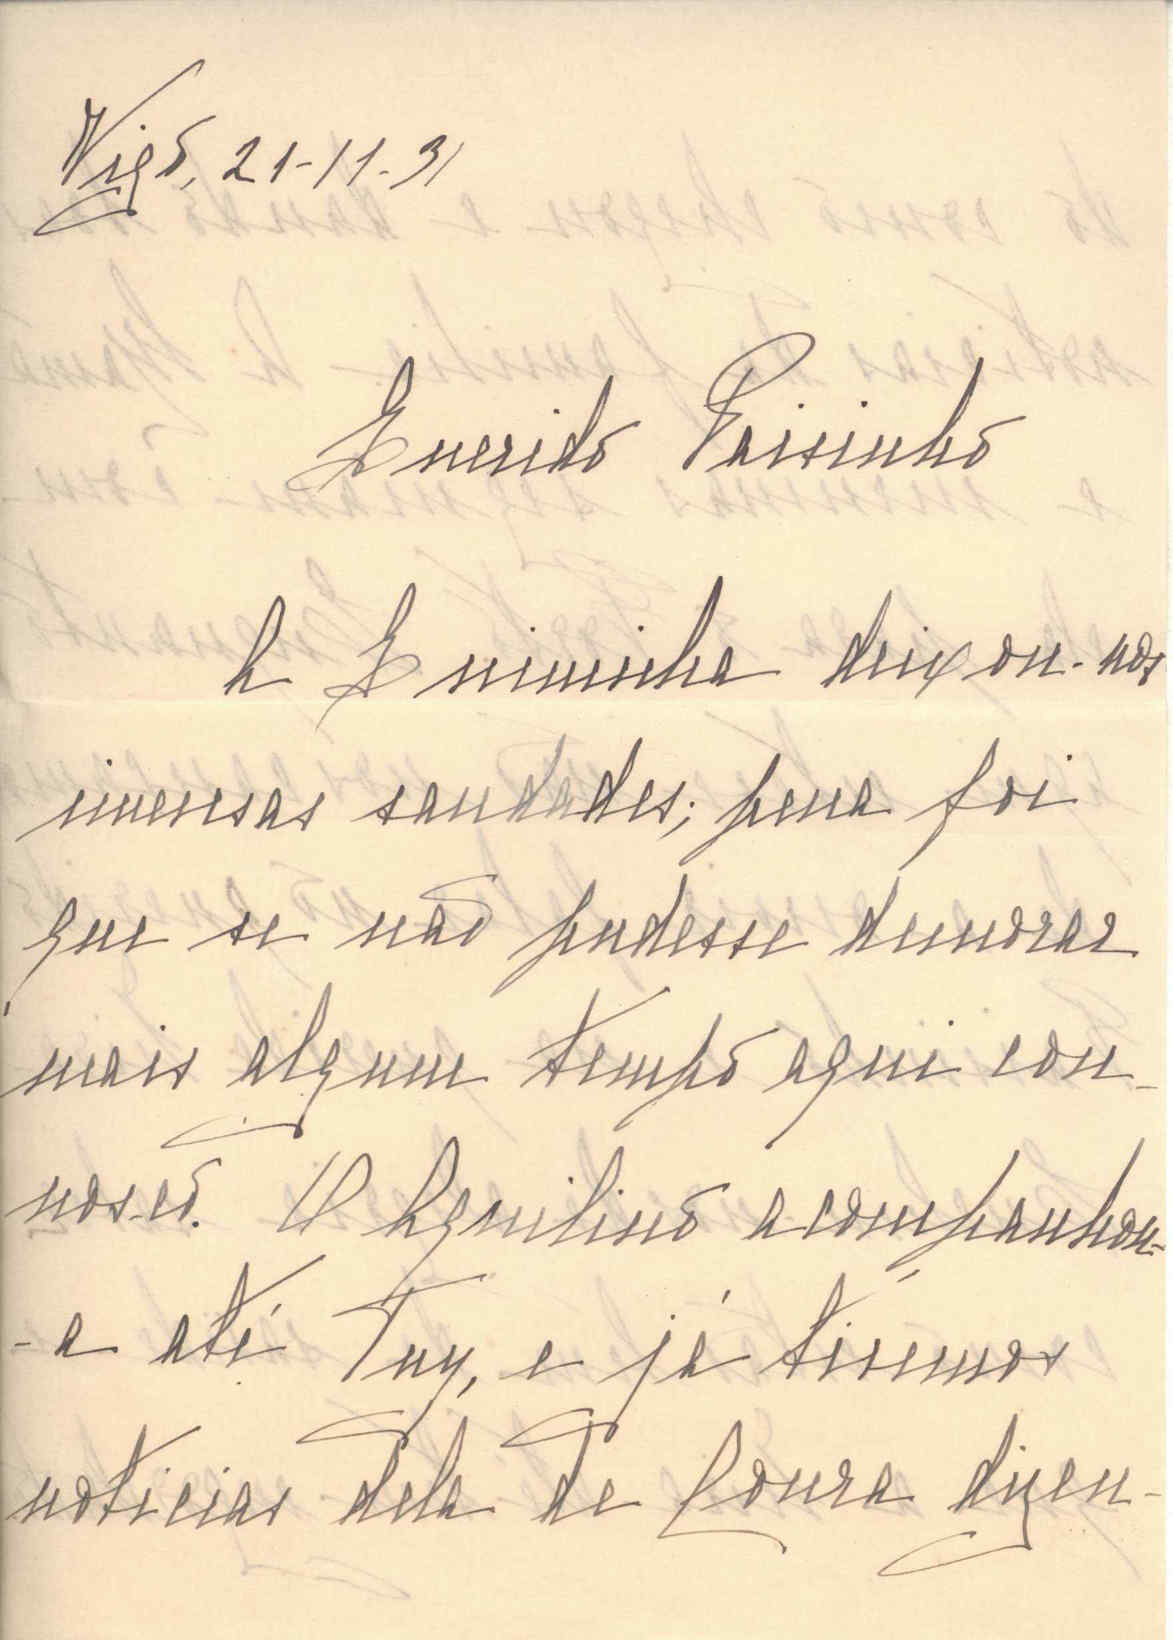 Vigo, 21-11-31
Querido Paisinho
A Quininha deixou-nos
imensas saudades; pena foi
que se não pudesse demorar
mais algum tempo aqui con-
nosco. O Aquilino acompanhou-
-a até Tuy, e já tivemos
noticias dela de Coura dizen-